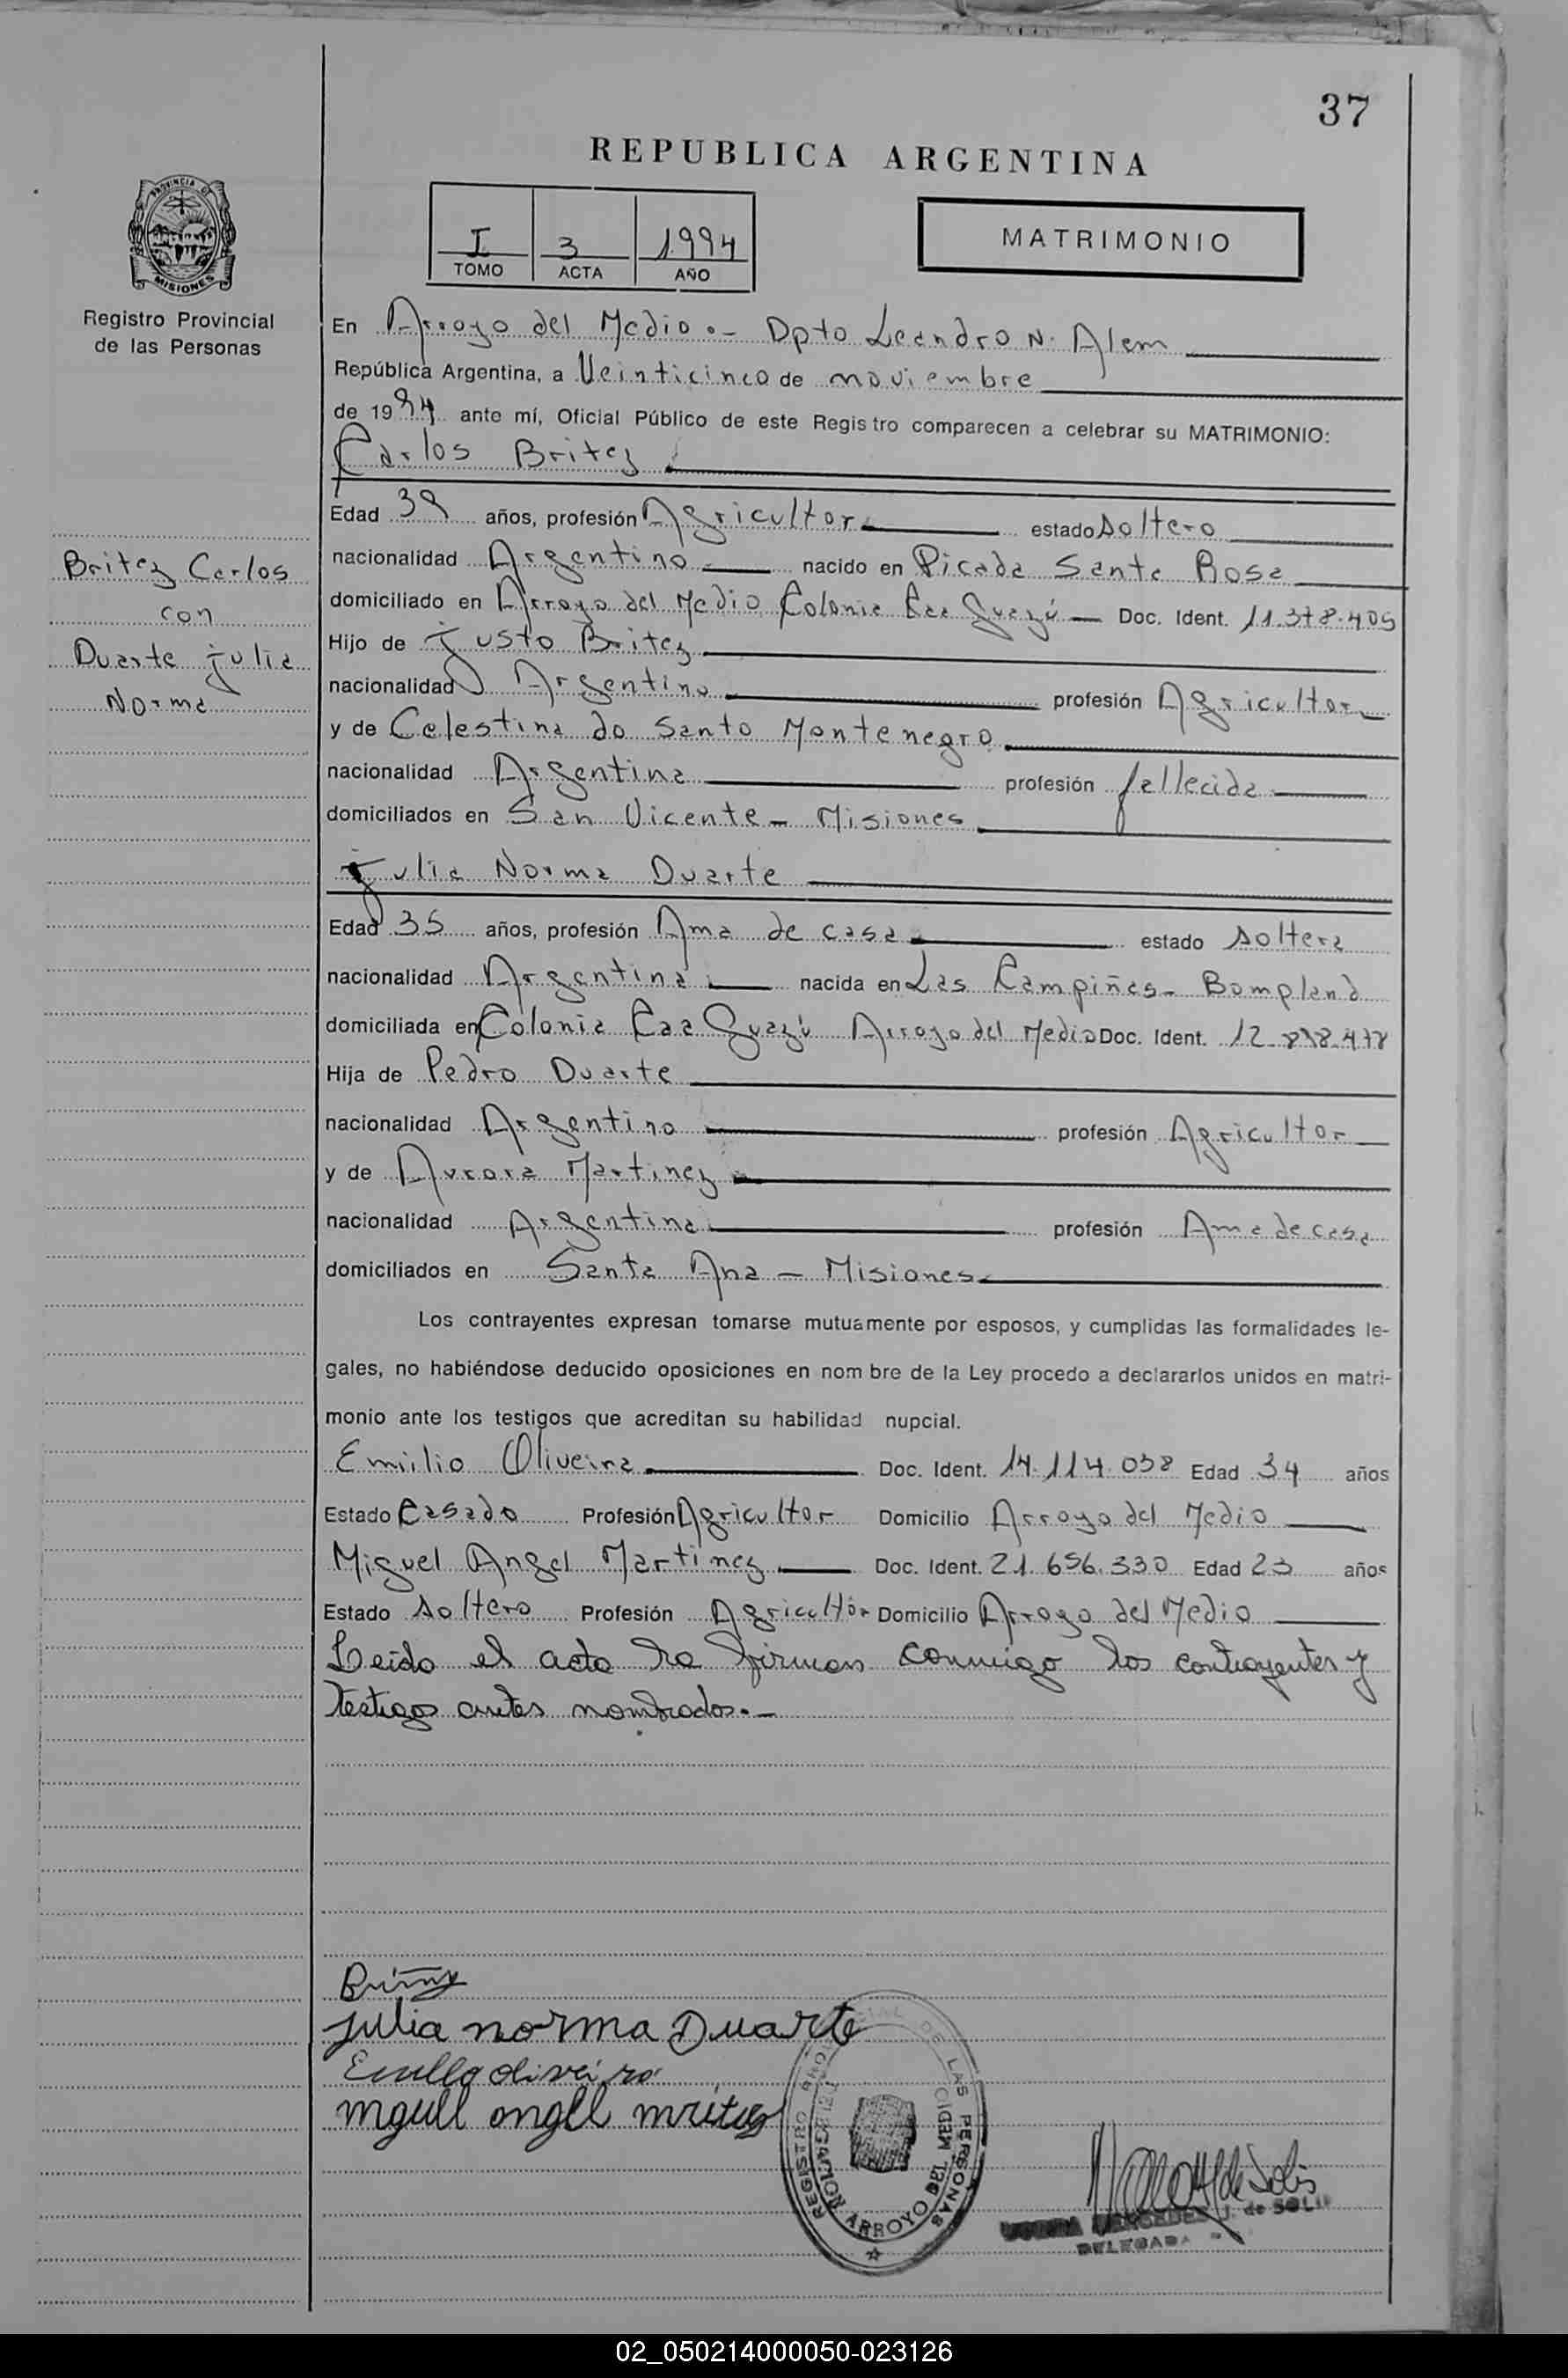 37
REPUBLICA ARGENTINA
I 3 1994
TOMO ACTA AÑO
MATRIMONIO
PROVINCIA DE
MISIONES
Registro Provincial
de las Personas
Britez Carlos
con
Duarte Julia
Norma
En Arroyo del Medio.- Dpto Leandro N. Alem
República Argentina, a Veinticinco de noviembre
de 1994 ante mí, Oficial Público de este Registro comparecen a celebrar su MATRIMONIO:
Carlos Britez
Edad 39 años, profesión Agricultor estado soltero
nacionalidad Argentino nacido en Picada Santa Rosa
domiciliado en Arroyo del Medio Colonia Caa Guazú Doc. Ident. 11.378.405
Hijo de Justo Britez
nacionalidad Argentino profesión Agricultor
y de Celestina do Santo Montenegro
nacionalidad Argentina profesión fallecida
domiciliados en San Vicente - Misiones
Julia Norma Duarte
Edad 35 años, profesión Ama de casa estado soltera
nacionalidad Argentina nacida en Las Campiñas - Bompland
domiciliada en Colonia Caa Guazú Arroyo del Medio Doc. Ident.
Hija de Pedro Duarte
nacionalidad Argentino profesión Agricultor
y de Aurora Martinez
nacionalidad Argentina profesión Ama de casa
domiciliados en Santa Ana - Misiones
Los contrayentes expresan tomarse mutuamente por esposos, y cumplidas las formalidades le-
gales, no habiéndose deducido oposiciones en nombre de la Ley procedo a declararlos unidos en matri-
monio ante los testigos que acreditan su habilidad nupcial.
Emilio Oliveira Doc. Ident. 14.114.038 Edad 34 años
Estado Casado Profesión Agricultor Domicilio Arroyo del Medio
Miguel Angel Martinez Doc. Ident. 21.656.330 Edad 23 años
Estado soltero Profesión Agricultor Domicilio Arroyo del Medio
Leido el acta la firman conmigo los contrayentes y
testigos antes nombrados.-
Julia norma Duarte
REGISTRO PROVINCIAL DE LAS PERSONAS
DELEGACION ARROYO DEL MEDIO
MERCEDES J. de SOLIS
DELEGADA
02_050214000050-023126